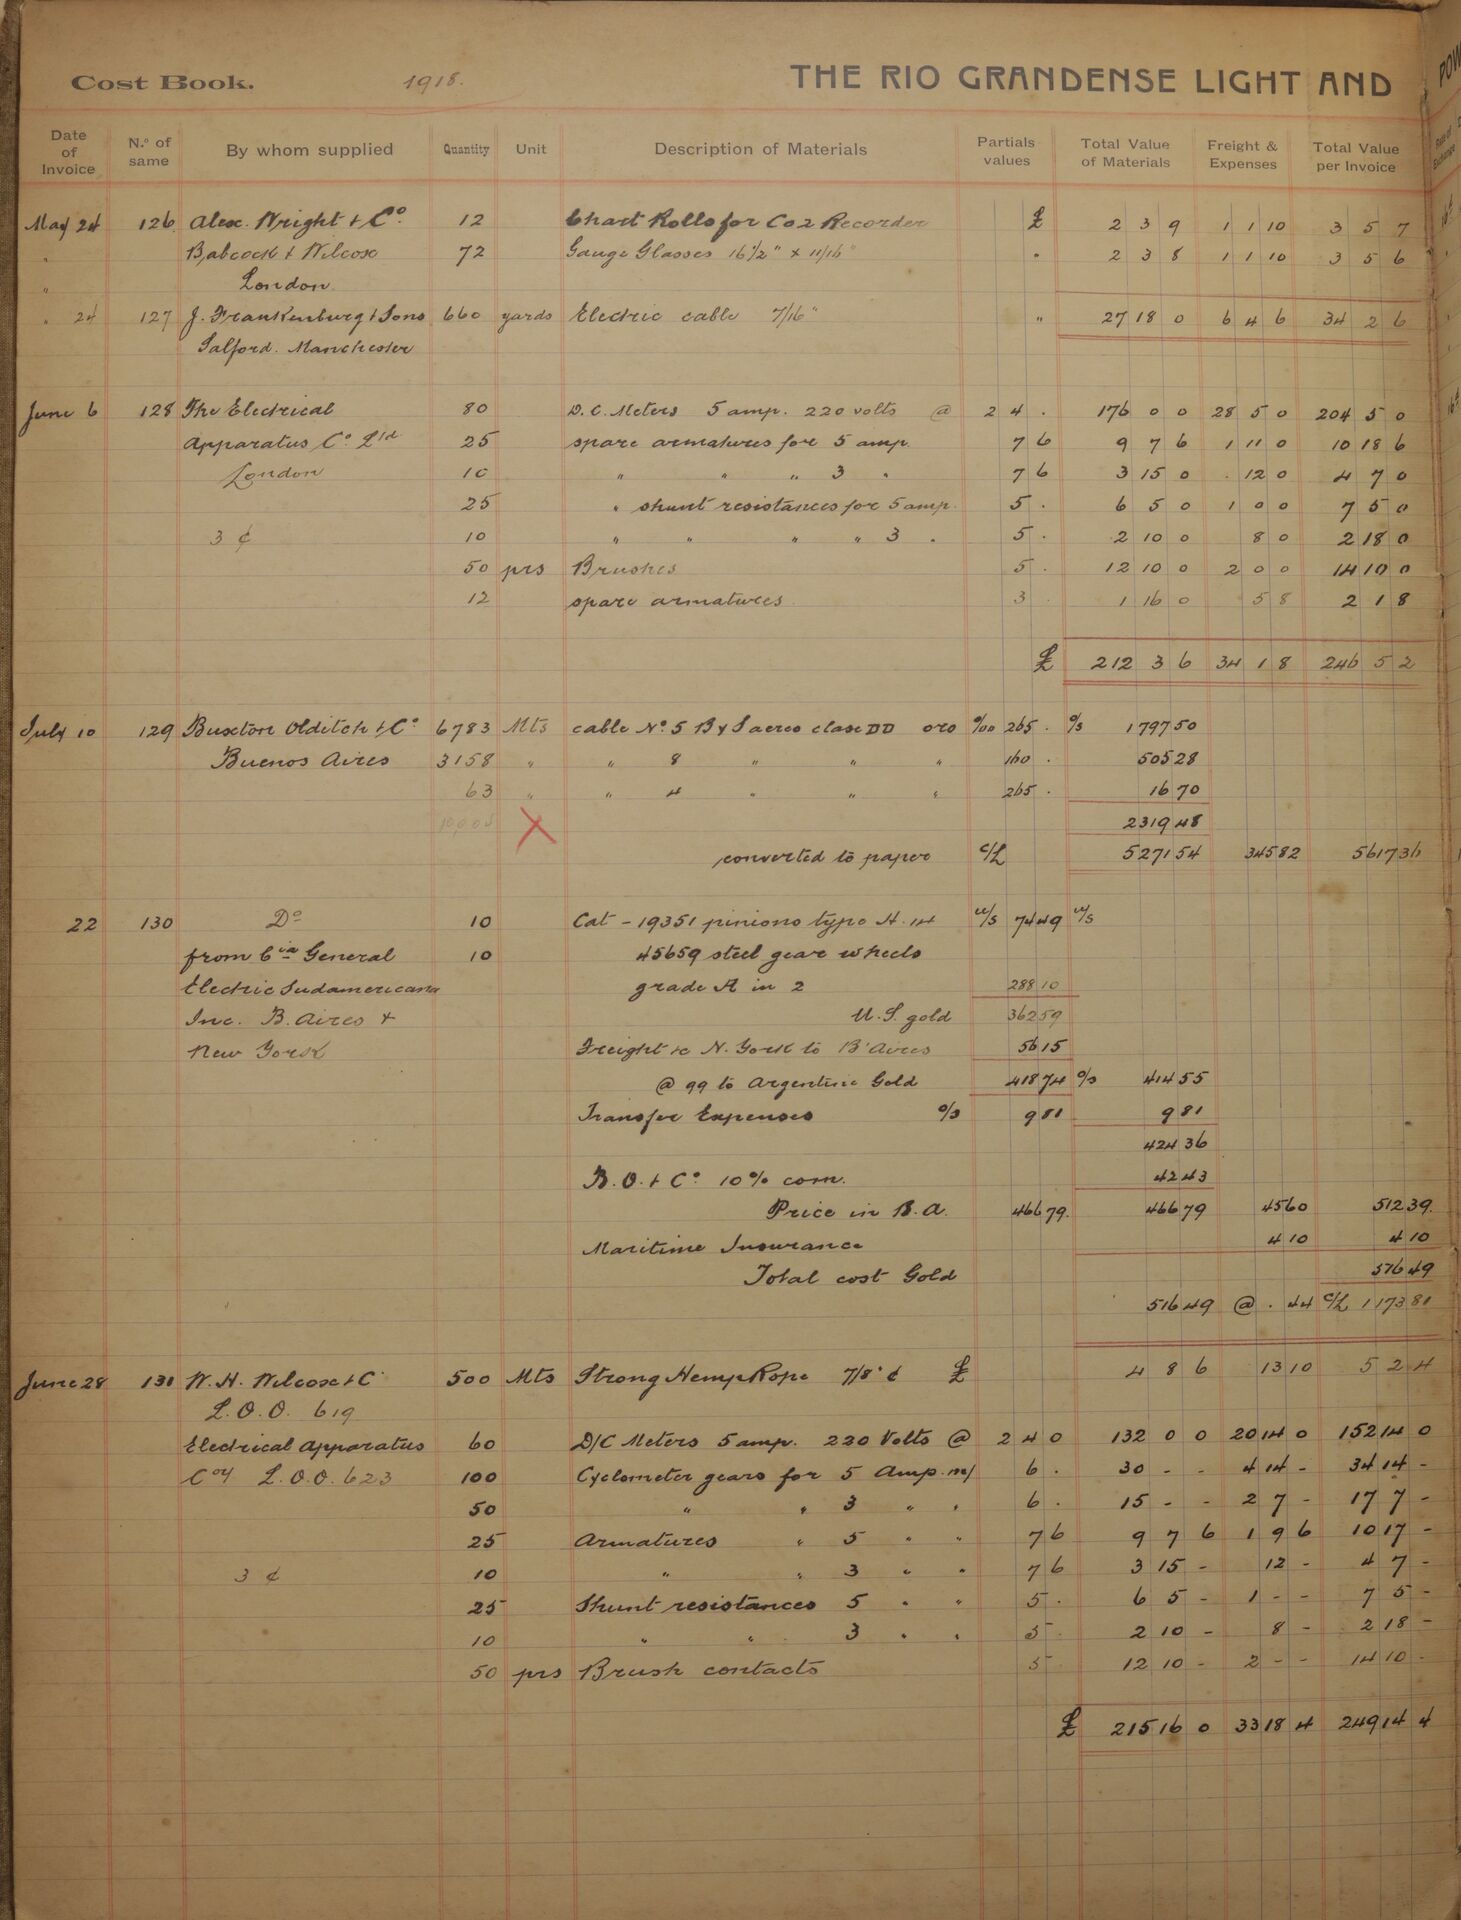 Cost Book. 1918. THE RIO GRANDENSE LIGHT AND POW
Date of Invoice N.º of same By whom supplied Quantity Unit Description of Materials Partials values Total Value of Materials Freight & Expenses Total Value per Invoice Rate of Exchange
May 24 126 Alex. Wright & Cº 12 Chart Rolls for Co2 Recorder £ 2 3 9 1 1 10 3 5 7
" Babcock & Wilcox 72 Gauge Glasses 16 1/2" x 11/16" " 2 3 8 1 1 10 3 5 6
" London
" 24 127 J. Frankenburg & Sons 660 yards Electric cable 7/16" " 27 18 0 6 4 6 34 2 6
Salford. Manchester
June 6 128 The Electrical 80 D.C. Meters 5 amp. 220 volts @ 2 4 . 176 0 0 28 5 0 204 5 0
Apparatus Cº Ltd 25 spare armatures for 5 amp. 7 6 9 7 6 1 11 0 10 18 6
London 10 " " " 3 " 7 6 3 15 0 . 12 0 4 7 0
25 " shunt resistances for 5 amp. 5 . 6 5 0 1 0 0 7 5 0
3 ¢ 10 " " " " 3 . 5 . 2 10 0 8 0 2 18 0
50 prs Brushes 5 . 12 10 0 2 0 0 14 10 0
12 spare armatures 3 1 16 0 5 8 2 1 8
£ 212 3 6 34 1 8 246 5 2
July 10 129 Buxton Olditch & Cº 6783 Mts cable Nº 5 B y S acres clase DD oro º/oo 265 . o/s 1797 50
Buenos Aires 3158 " " 8 " " " 160 . 505 28
63 " " 4 " " " 265 . 16 70
X 2319 48
converted to paper c/L 5271 54 345 82 5617 36
22 130 Dº 10 Cat - 19351 pinions type H. 14 u/s 74 49 u/s
from Cia General 10 45659 steel gear wheels
Electric Sudamericana grade A in 2 288 10
Inc. B. Aires & U.S. gold 362 59
New York Freight &c N. York to B'Aires 56 15
@ 99 to Argentine Gold 418 74 o/s 414 55
Transfer Expenses o/s 9 81 9 81
424 36
B.O. & Cº 10% com. 42 43
Price in B.A. 466 79. 466 79 45 60 512 39.
Maritime Insurance 4 10 4 10
Total cost Gold 516 49
516 49 @ . 44 c/L 1173 81
June 28 131 W. H. Wilcox & C 500 Mts Strong Hemp Rope 7/8" ¢ £ 4 8 6 13 10 5 2 4
L.O.O. 619
Electrical Apparatus 60 D/C Meters 5 amp. 220 Volts @ 2 4 0 132 0 0 20 14 0 152 14 0
Coy L.O.O. 623 100 Cyclometer gears for 5 Amp. m/ 6 . 30 - - 4 14 - 34 14 -
50 " " 3 " " 6 . 15 - - 2 7 - 17 7 -
25 Armatures " 5 " " 7 6 9 7 6 1 9 6 10 17 -
3 ¢ 10 " " 3 " " 7 6 3 15 - 12 - 4 7 -
25 Shunt resistances 5 " " 5 . 6 5 - 1 - - 7 5 -
10 " " 3 " " 5 2 10 - 8 - 2 18 -
50 prs Brush contacts 5 12 10 - 2 - - 14 10 -
£ 215 16 0 33 18 4 249 14 4